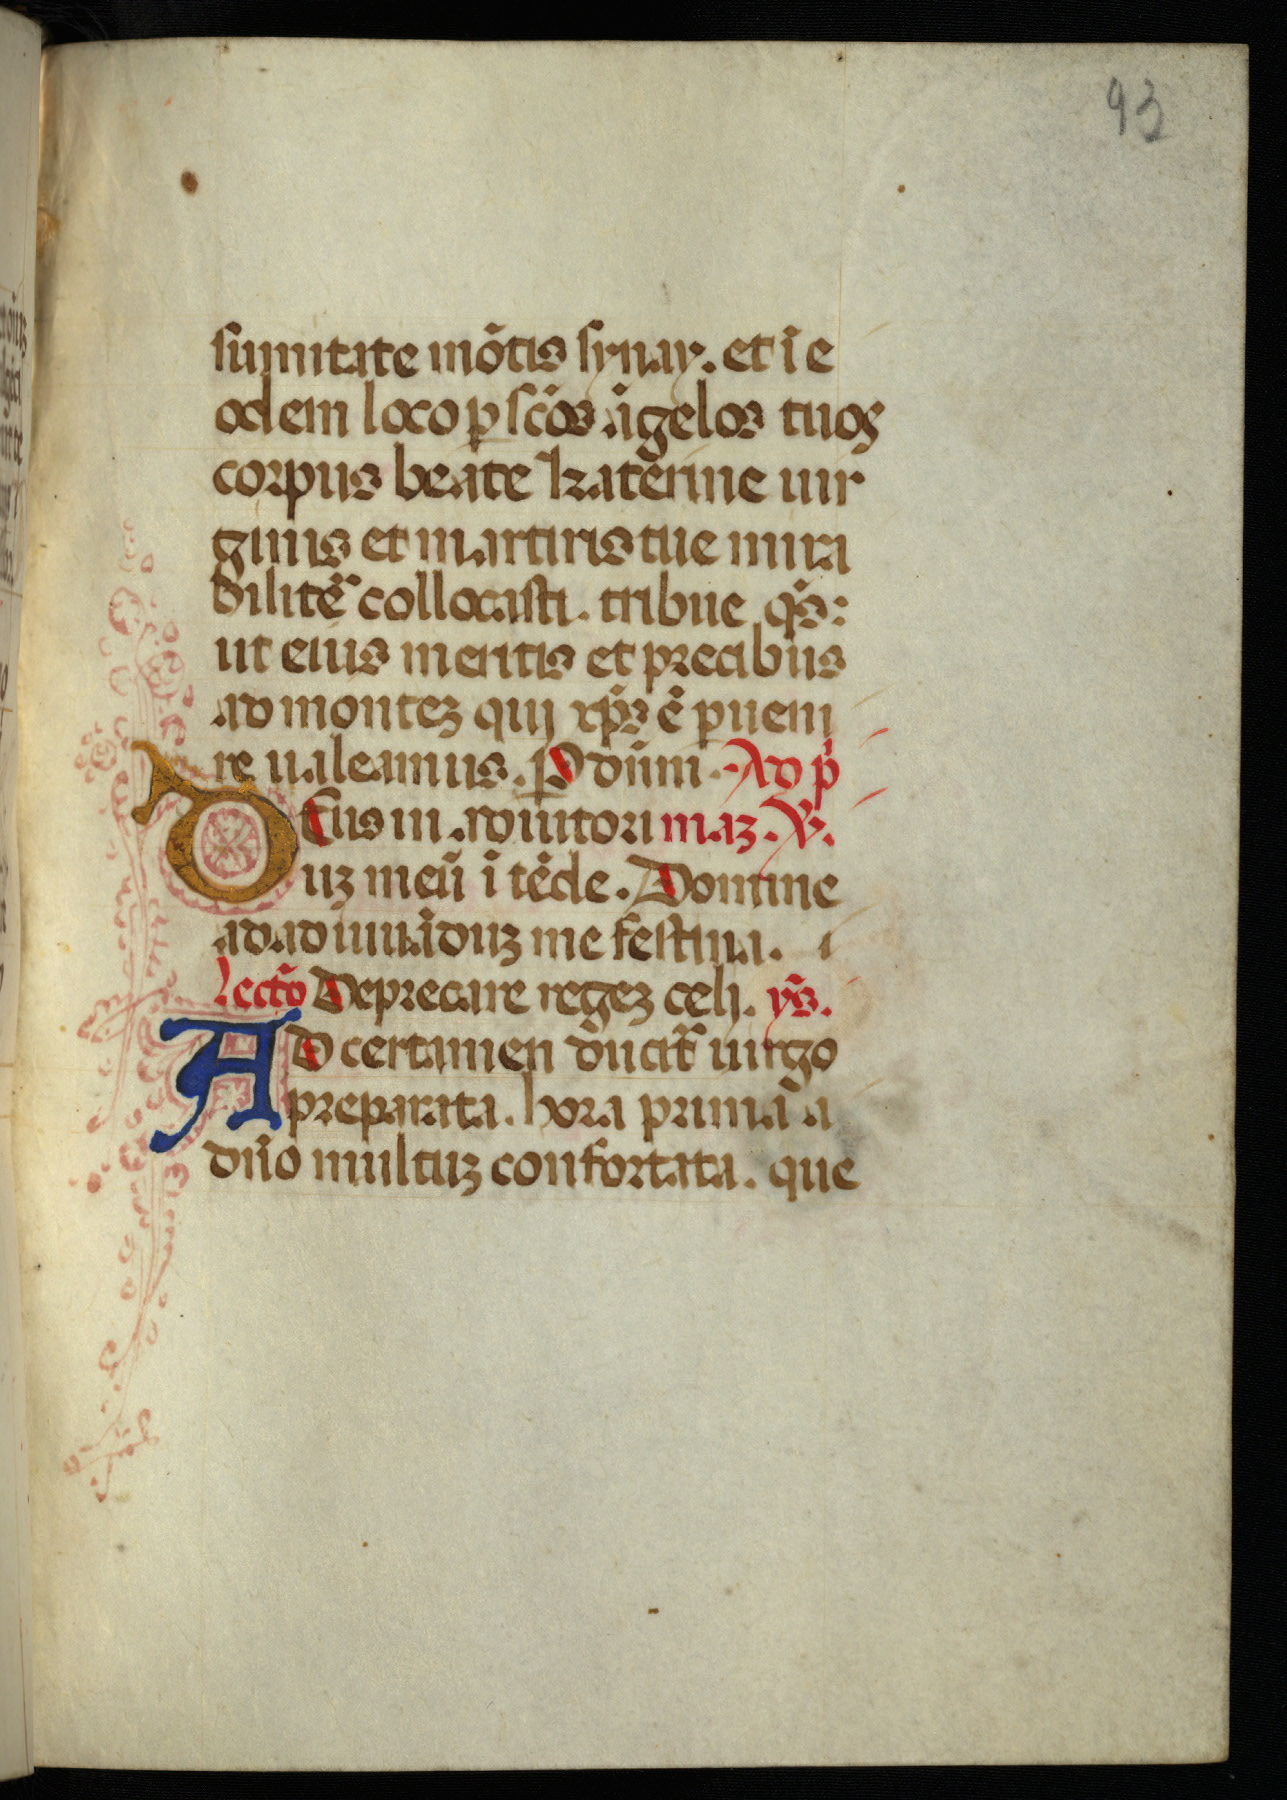 93
sumitate mõtis synay. et ĩ e
odem loco p scõs ãgelos tuos
corpus beate katerine uir
ginis et martiris tue mira
bilitẽ collocasti. tribue qs̃:
ut eius meritis et precibus
ad montez qui xp̃s ẽ pueni
re ualeamus. P dñm. Ad p̃
Deus in adiutori maz. V̾.
uz meũ ĩ tẽde. Domine
ad adiuuãduz me festina.
lectõ Deprecare regez celi. ys̃.
AD certamen ducit̃ uirgo
preparata. hora prima ã a
dño multuz confortata. que